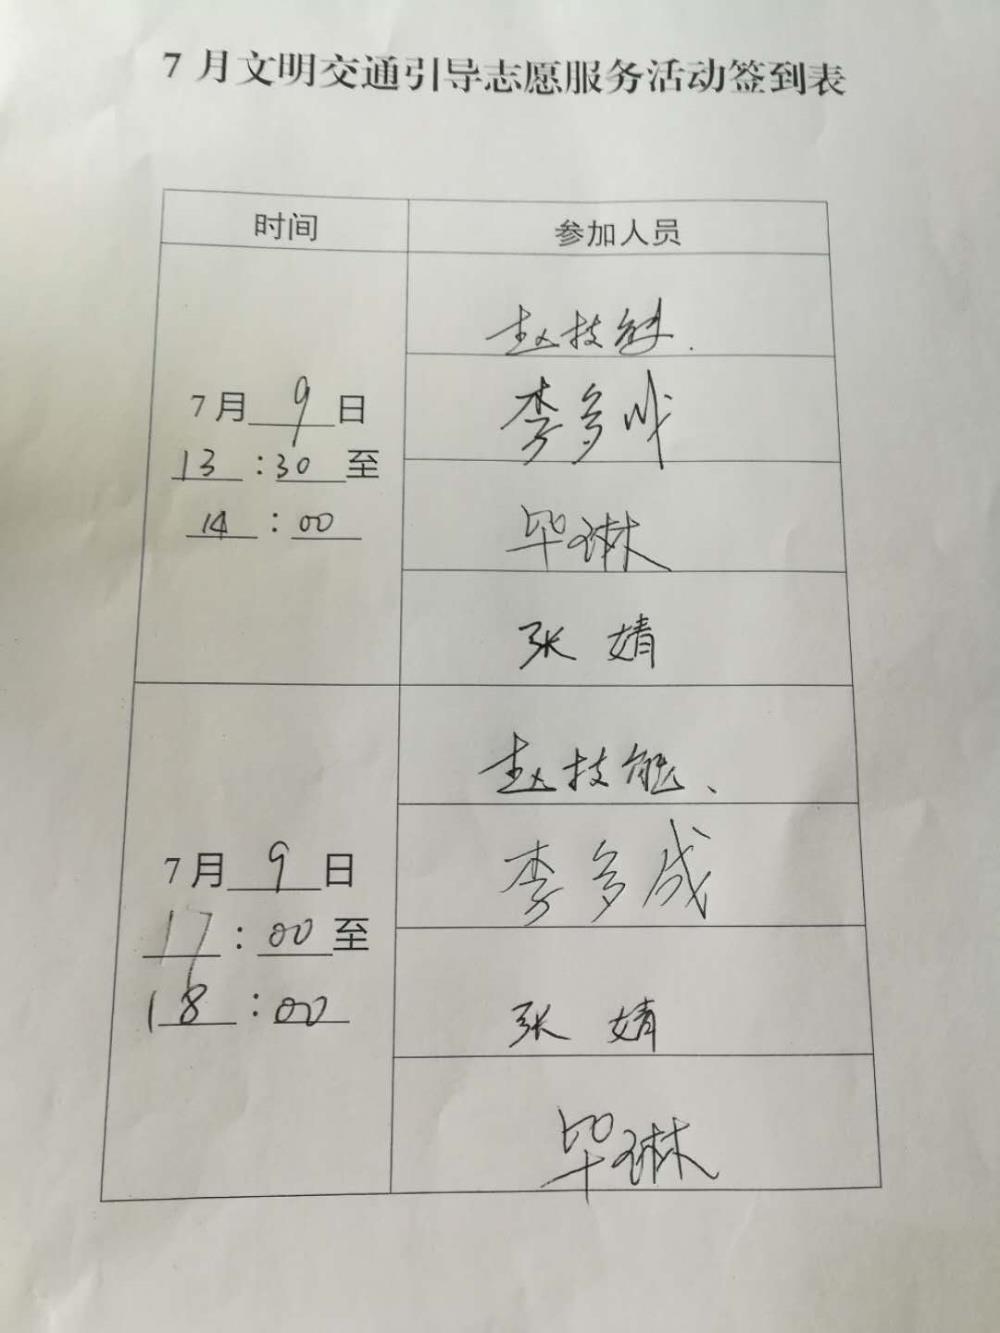 7月文明交通引导志愿服务活动签到表
时间
参加人员
7月9日
13:30至
14:00
赵技能
李多成
毕琳
张婧
7月9日
17:00至
18:00
赵技能
李多成
张婧
毕琳